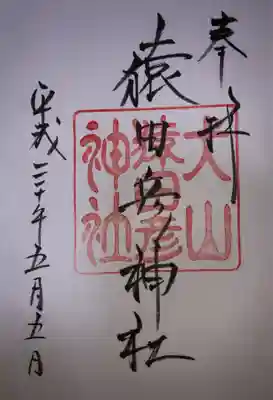 奉拝
猿田彦神社
大山
猿田彦
神社
平成三十年五月五日